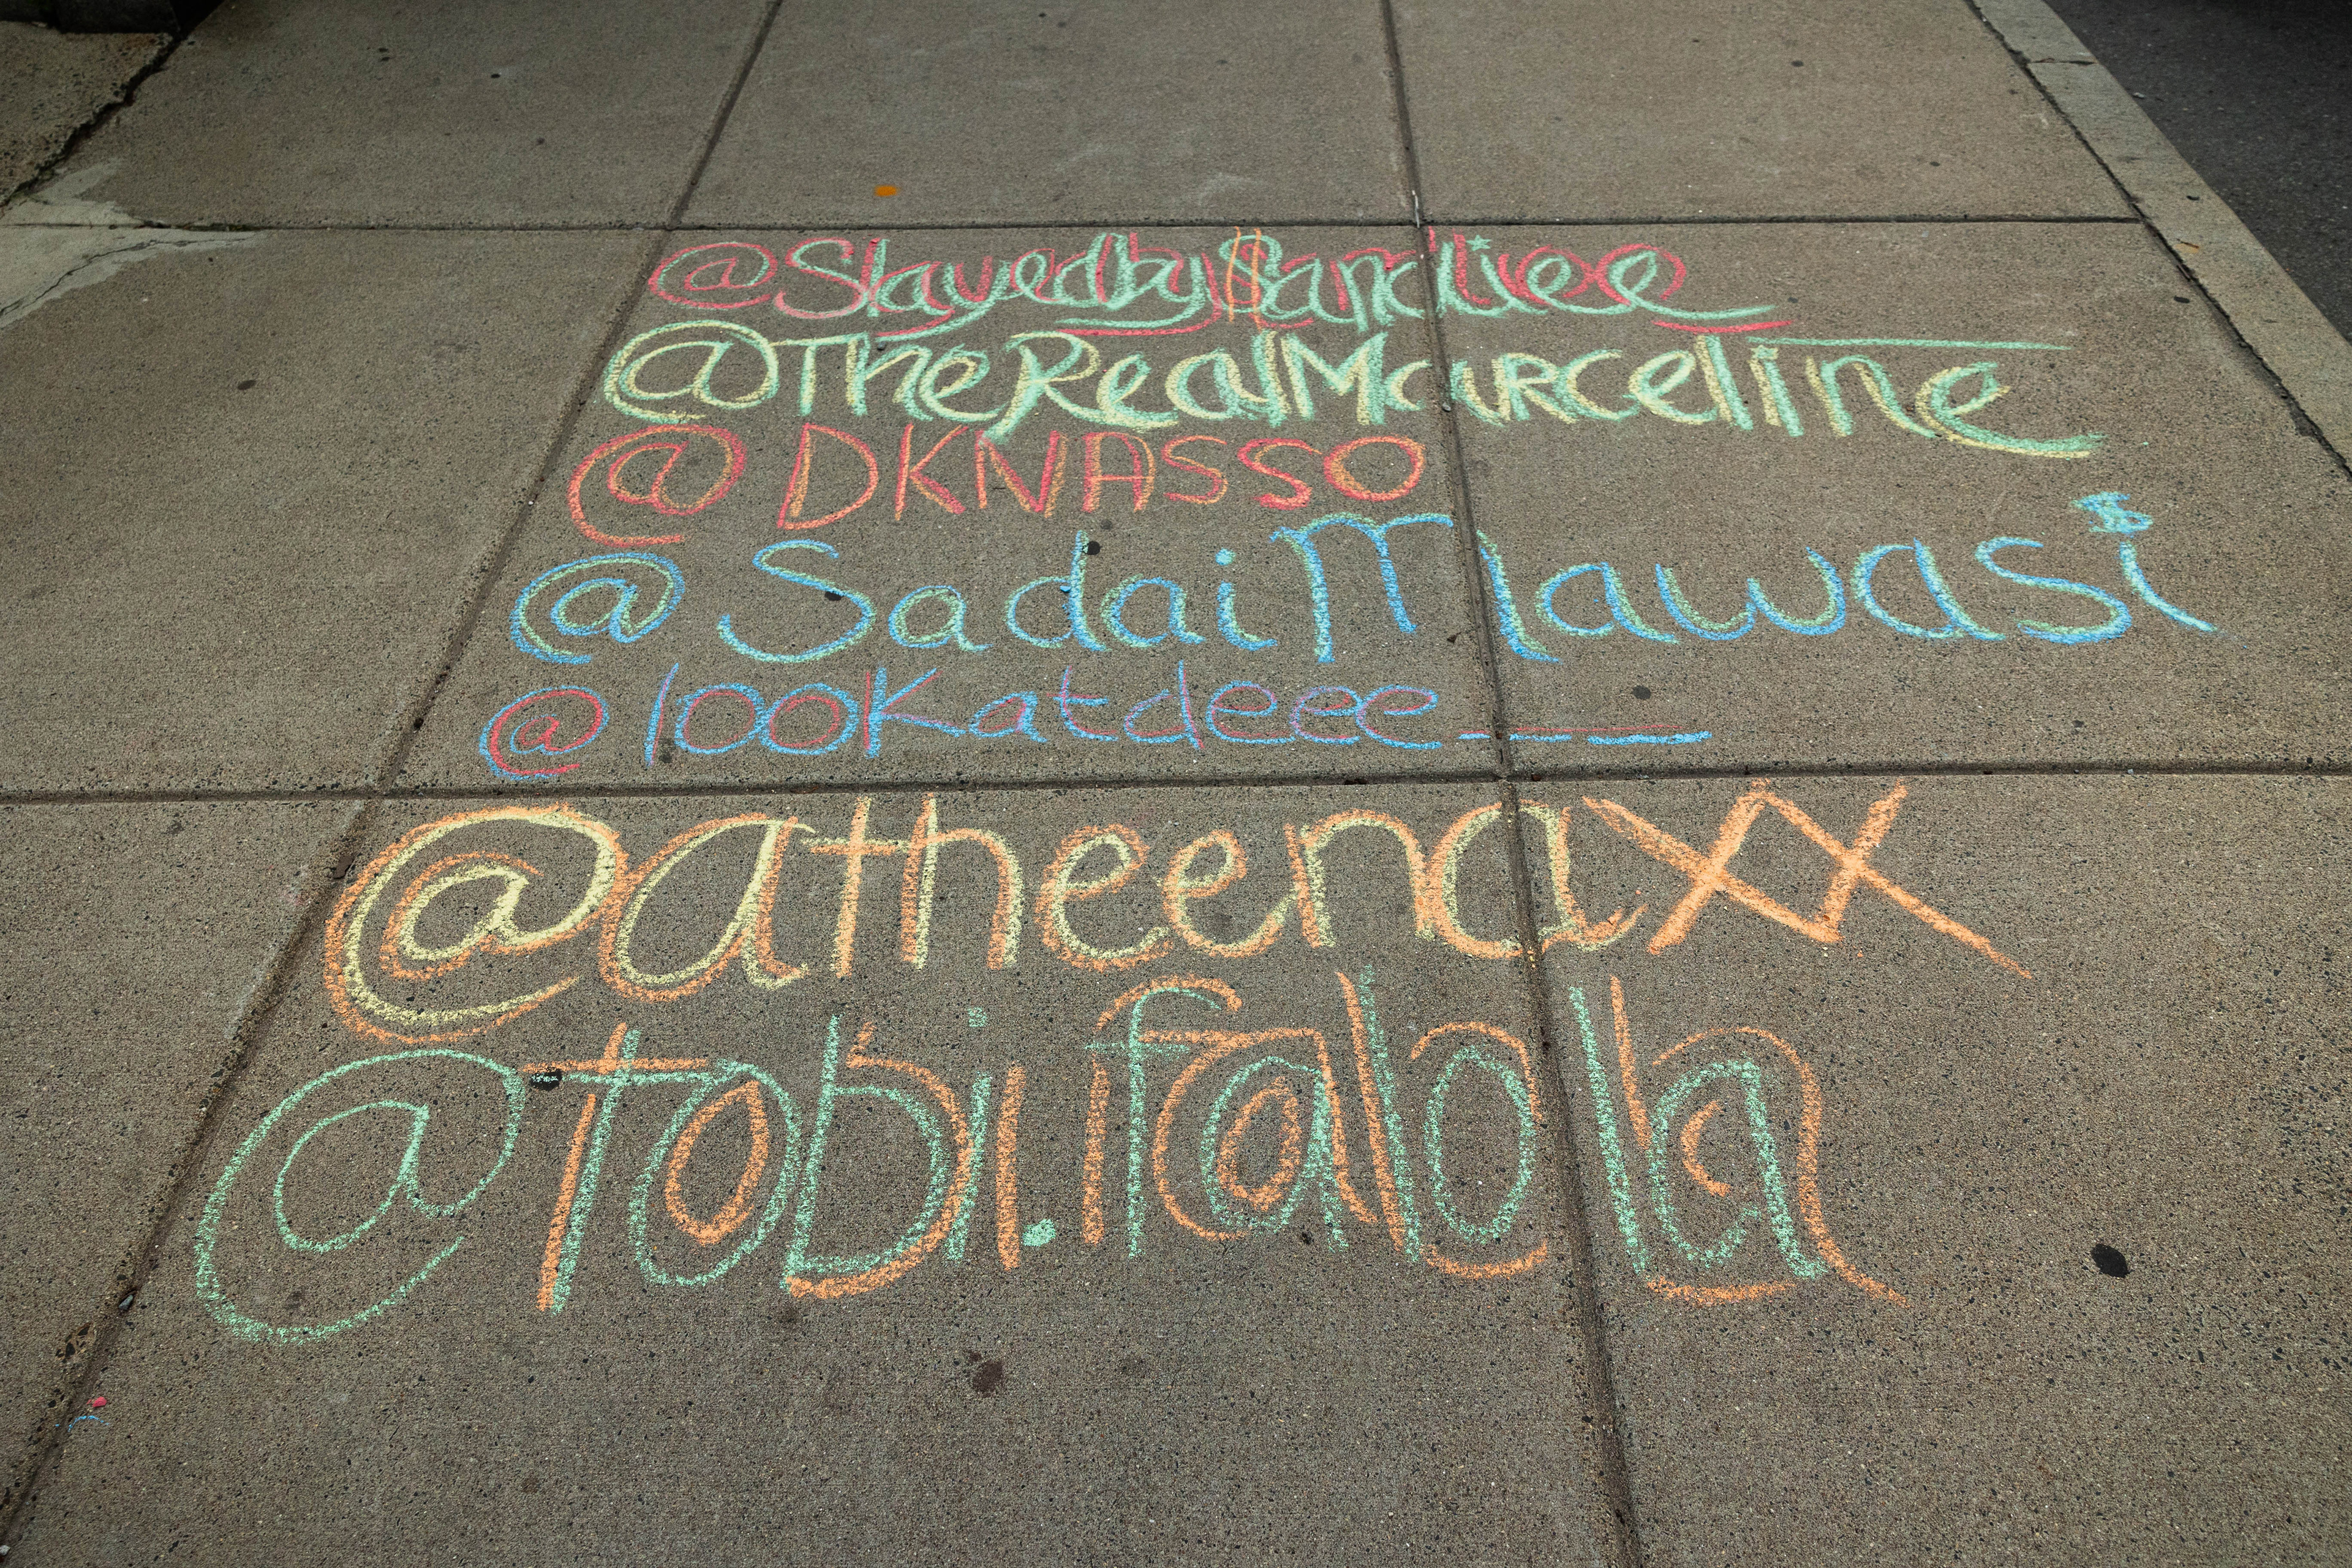 @Slayedby$andiee
@TheRealMarceline
@DKNASSO
@SadaiMawasi
@100Katdeee__
@atheenaxx
@tobi.falolla